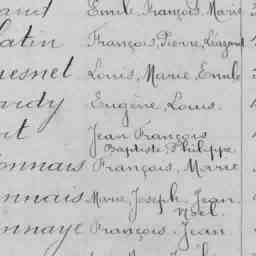 Emile, François, Marie
latin François, Pierre, Léazard
esnel Louis, Marie, Emile
ardy Eugène, Louis
nt Jean François
Baptiste, Philippe
onnais François, Marie
nnais Marie, Joseph, Jean
Noël
nnaye François, Jean